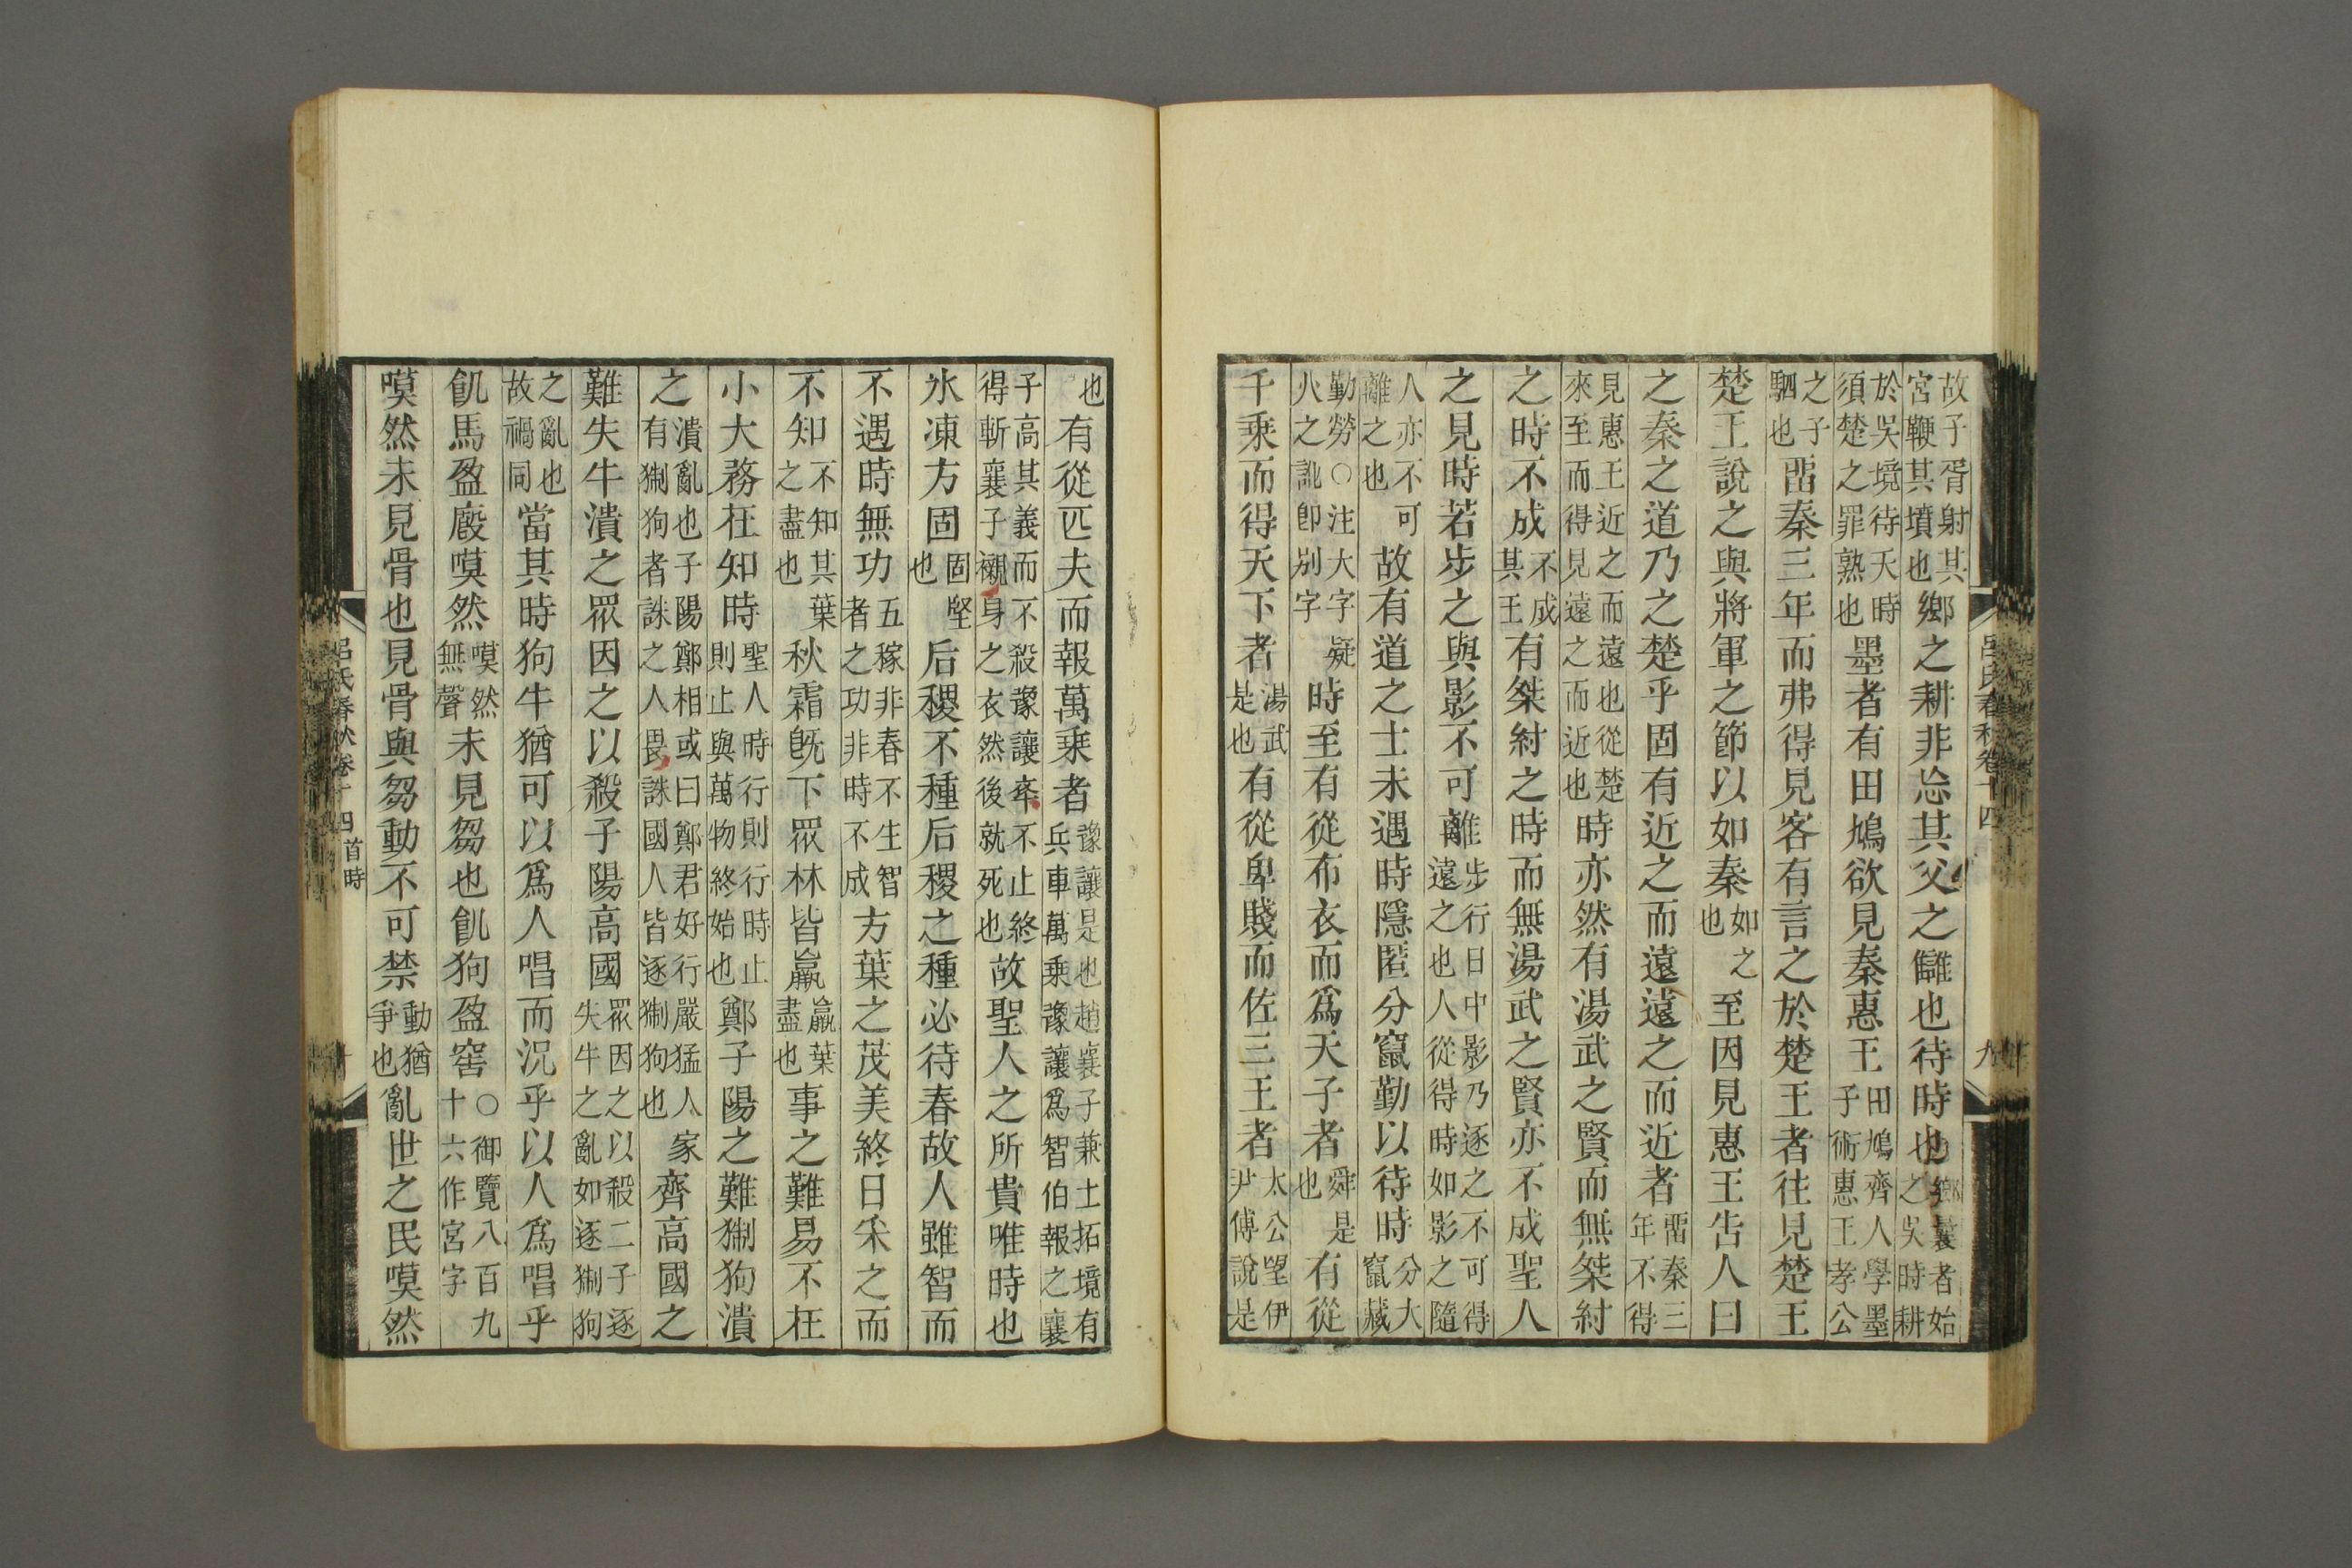 故子胥射其宮鞭其墳也鄉之耕非忘其父之讎也待時也鄉曩者始之吳時耕
於吳境待天時須楚之罪熟也墨者有田鳩欲見秦惠王田鳩齊人學墨子術惠王孝公
之子駟也畱秦三年而弗得見客有言之於楚王者往見楚王
楚王說之與將軍之節以如秦如之也至因見惠王告人曰
之秦之道乃之楚乎固有近之而遠遠之而近者畱秦三年不得
見惠王近之而遠也從楚來至而得見遠之而近也時亦然有湯武之賢而無桀紂
之時不成不成其王有桀紂之時而無湯武之賢亦不成聖人
之見時若步之與影不可離步行日中影乃逐之不可得遠之也人從得時如影之隨
人亦不可離之也故有道之士未遇時隱匿分竄勤以待時分大竄藏
勤勞○注大字疑火之訛卽別字時至有從布衣而爲天子者舜是也有從
千乘而得天下者湯武是也有從卑賤而佐三王者太公望伊尹傅說是
呂氏春秋卷十四
九
也有從匹夫而報萬乘者豫讓是也趙襄子兼土拓境有兵車萬乘豫讓爲智伯報之襄
子高其義而不殺豫讓卒不止終得斬襄子襯身之衣然後就死也故聖人之所貴唯時也
水凍方固固堅也后稷不種后稷之種必待春故人雖智而
不遇時無功五稼非春不生智者之功非時不成方葉之茂美終日采之而
不知不知其葉之盡也秋霜旣下眾林皆羸羸葉盡也事之難易不在
小大務在知時聖人時行則行時止則止與萬物終始也鄭子陽之難猘狗潰
之潰亂也子陽鄭相或曰鄭君好行嚴猛人家有猘狗者誅之人畏誅國人皆逐猘狗也齊高國之
難失牛潰之眾因之以殺子陽高國眾因之以殺二子逐失牛之亂如逐猘狗
之亂也故禍同當其時狗牛猶可以爲人唱而況乎以人爲唱乎
飢馬盈廄嗼然嗼然無聲未見芻也飢狗盈窖○御覽八百九十六作宮字
嗼然未見骨也見骨與芻動不可禁動猶爭也亂世之民嗼然
呂氏春秋卷十四 首時
十